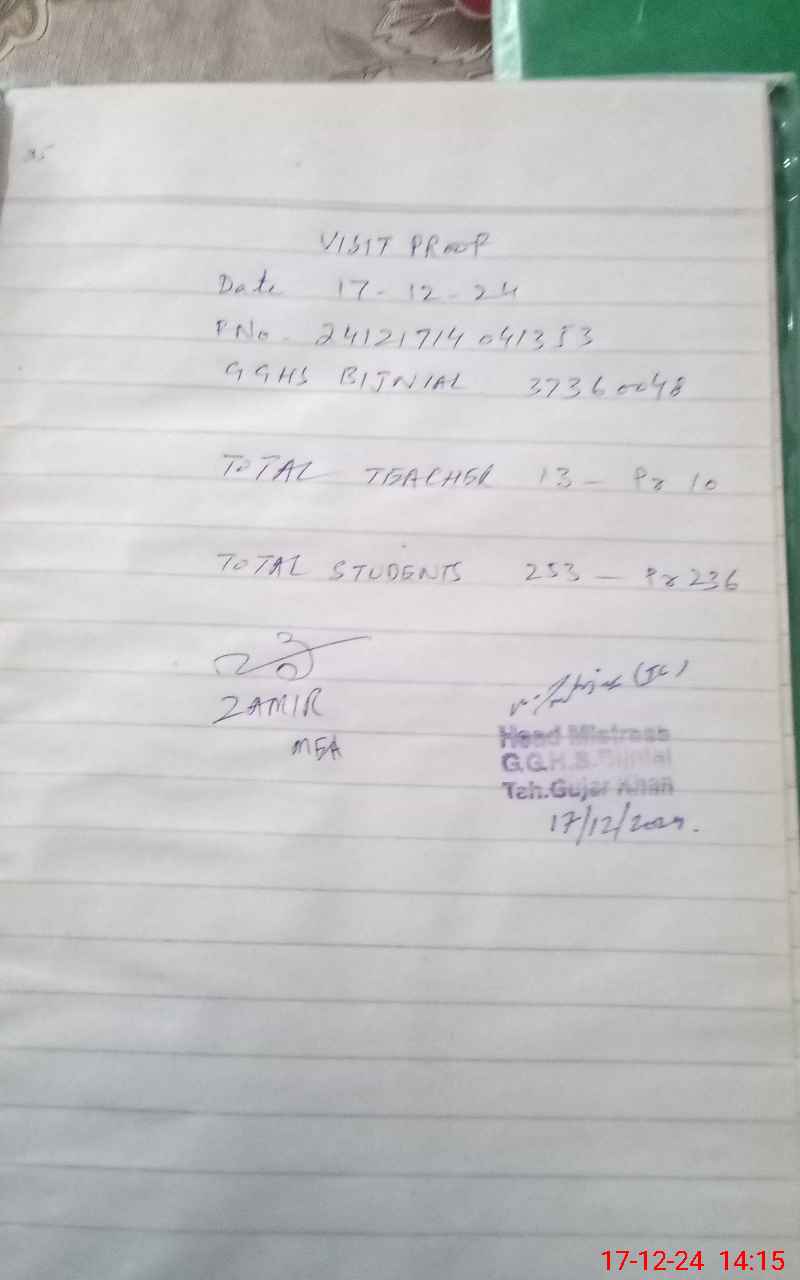 VISIT PROOF
Date 17-12-24
PNo. 24121714041353
GGHS BIJNIAL 37360048
TOTAL TEACHER 13 - Pr 10
TOTAL STUDENTS 253 - Pr 236
ZAMIR
MEA
(IC)
Head Mistress
G.G.H.S.Bijnial
Teh.Gujar Khan
17/12/2024.
17-12-24 14:15